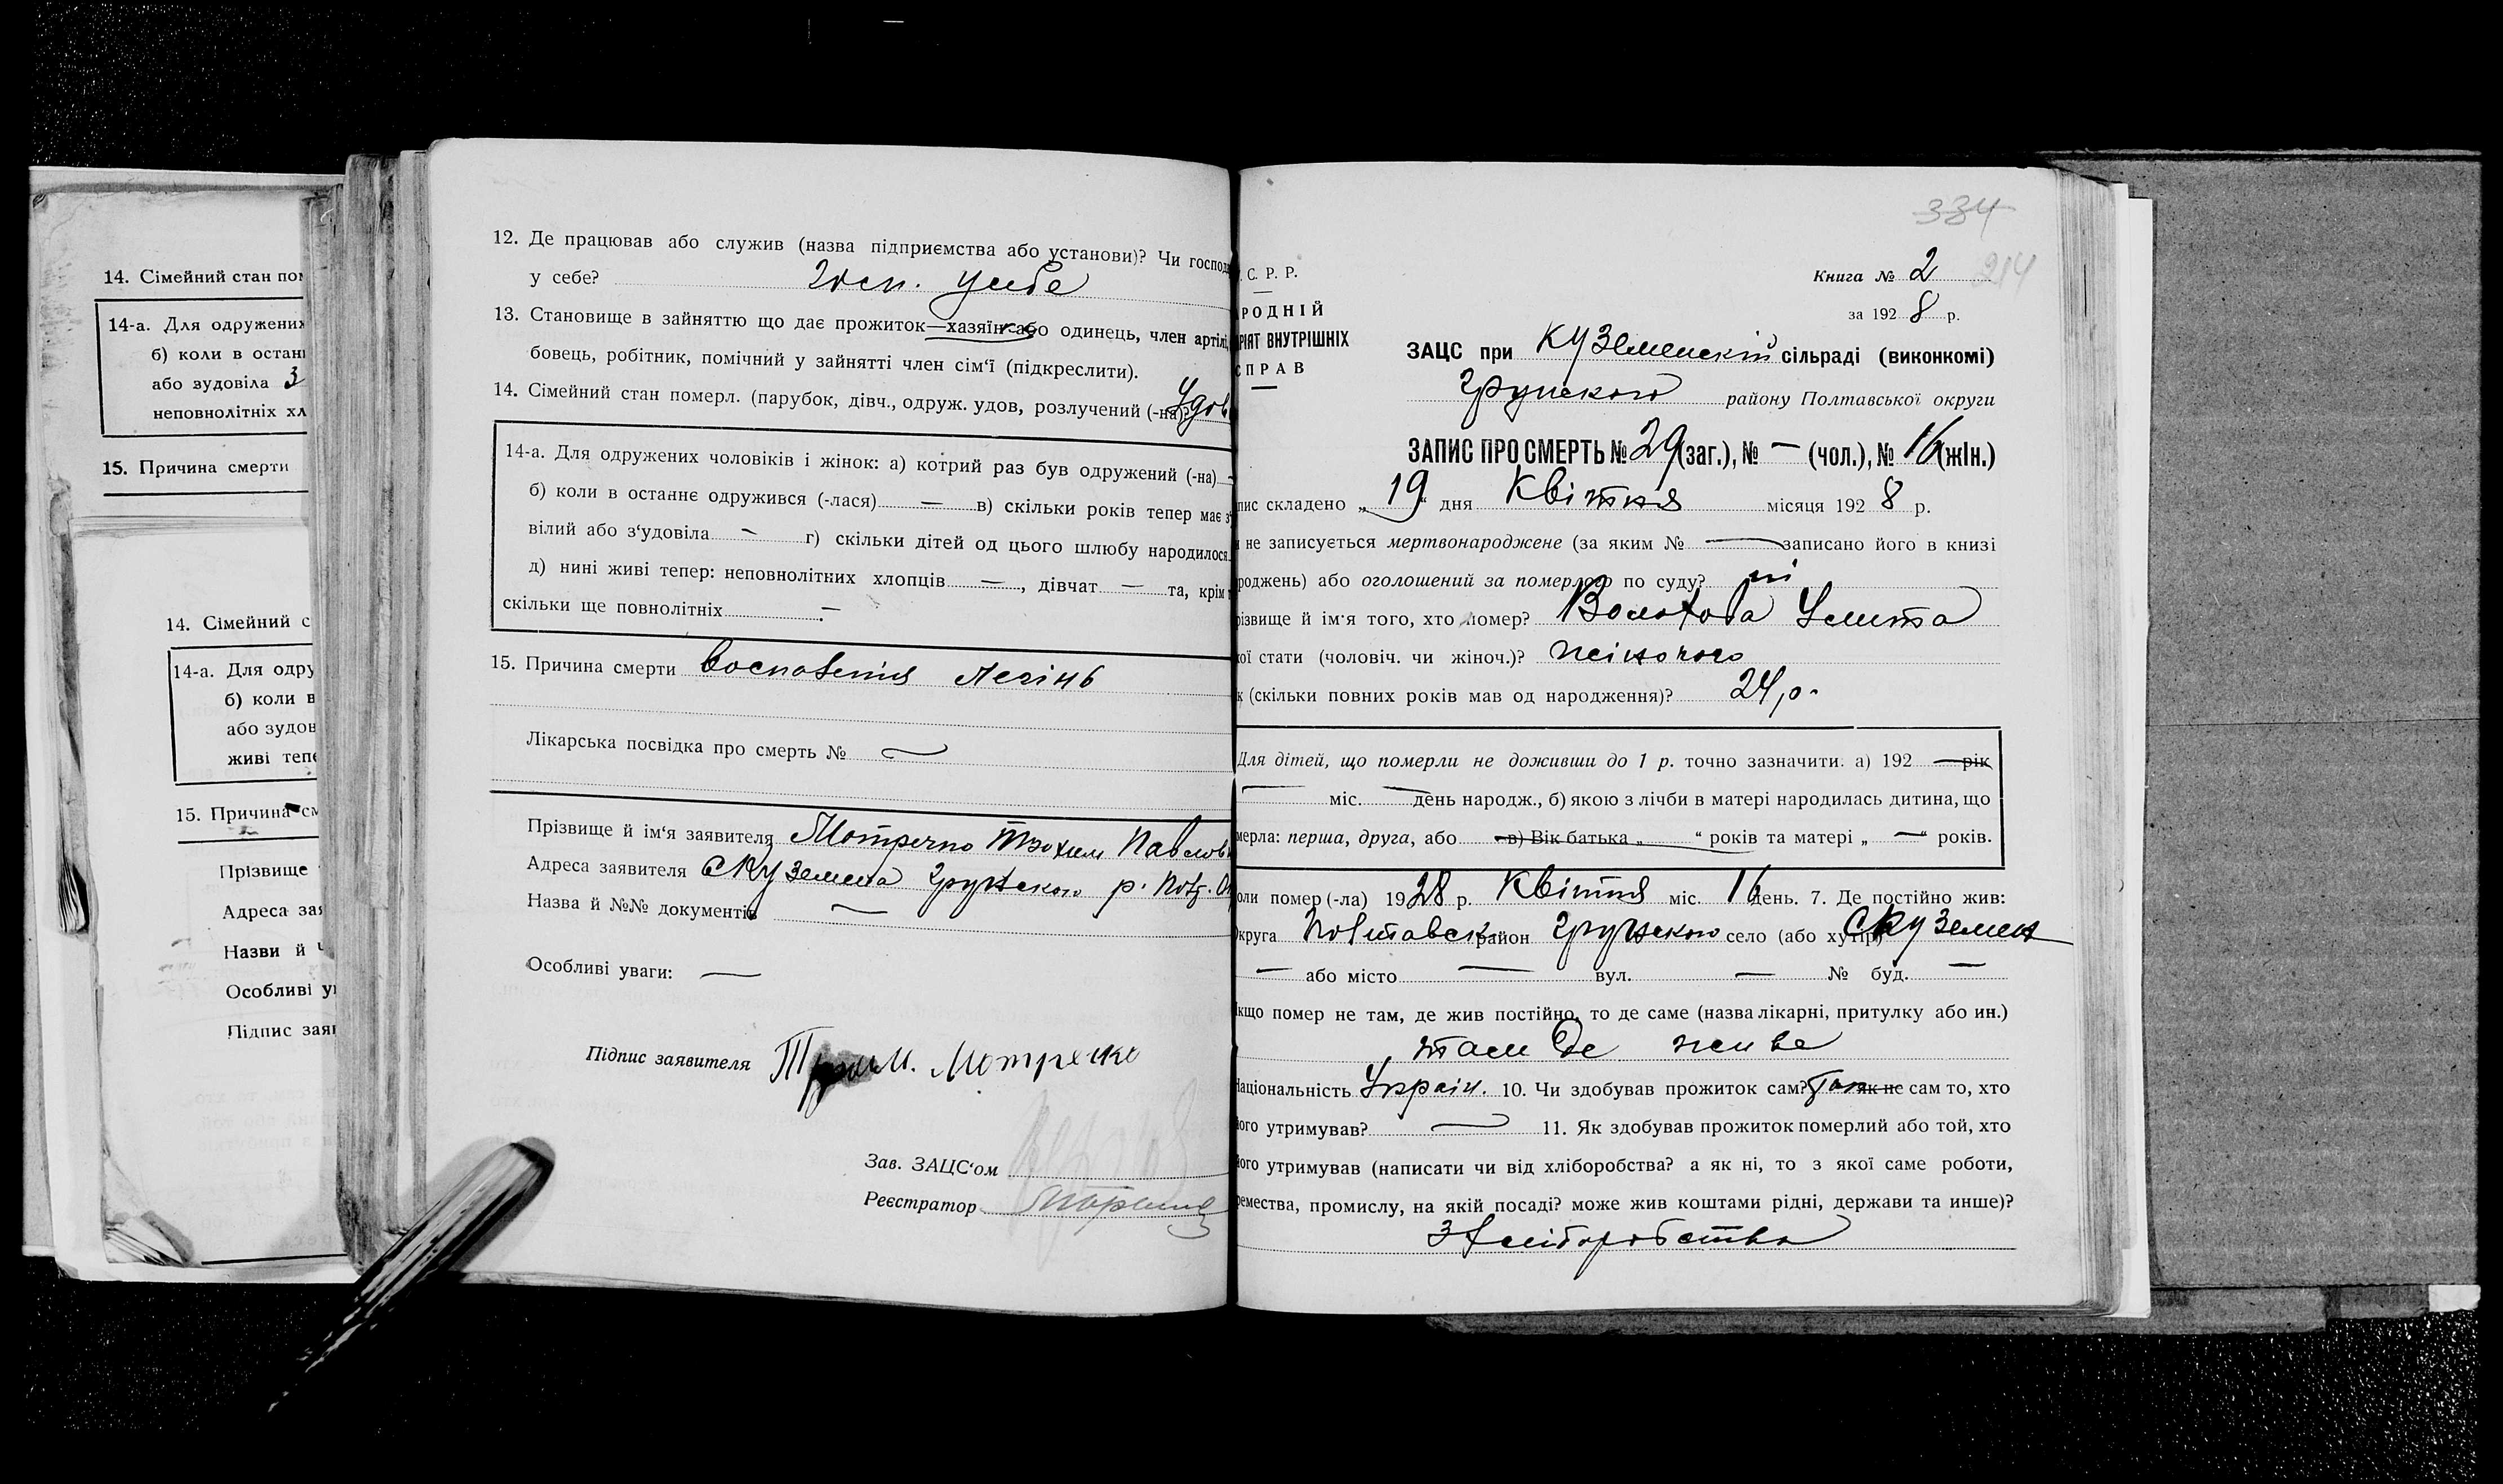 14. Сімейний стан пом
14-а. Для одружених
б) коли в останн
або зудовіла З
неповнолітніх хл
15. Причина смерти
14. Сімейний с
14-а. Для одру
б) коли в
або зудов
живі тепе
15. Причина см
Прізвище
Адреса зая
Назви й
Особливі у
Підпис зая
12. Де працював або служив (назва підприємства або установи)? Чи господ
у себе? Госп. у себе
13. Становище в зайняттю що дає прожиток—хазяїн або одинець, член артілі,
бовець, робітник, помічний у зайнятті член сім'ї (підкреслити).
14. Сімейний стан померл. (парубок, дівч., одруж. удов, розлучений (-на)? Удов
14-а. Для одружених чоловіків і жінок: а) котрий раз був одружений (-на) —
б) коли в останнє одружився (-лася) — в) скільки років тепер має з
вілий або з'удовіла — г) скільки дітей од цього шлюбу народилося
д) нині живі тепер: неповнолітних хлопців —, дівчат — та, крім т
скільки ще повнолітніх —
15. Причина смерти Воспаленія легінь
Лікарська посвідка про смерть № —
Прізвище й ім'я заявителя Мотренко Трохим Павлов
Адреса заявителя с Куземена Грунського р. Полт. О
Назва й №№ документів —
Особливі уваги: —
Підпис заявителя Мотренко
Зав. ЗАЦС'ом
Реєстратор
334
214
. С. Р. Р.
РОДНІЙ
РІЯТ ВНУТРІШНІХ
СПРАВ
Книга № 2
за 1928 р.
ЗАЦС при Куземенскій сільраді (виконкомі)
Грунского району Полтавської округи
ЗАПИС ПРО СМЕРТЬ № 29 (заг.), № — (чол.), № 16 (жін.)
пис складено „19“ дня Квітня місяця 1928 р.
и не записується мертвонароджене (за яким № — записано його в книзі
роджень) або оголошений за померлого по суду? ні
різвище й ім'я того, хто помер? Волохова Улита
кої стати (чоловіч. чи жіноч.)? жіночого
к (скільки повних років мав од народження)? 24 р.
Для дітей, що померли не доживши до 1 р. точно зазначити: а) 192 — рік
— міс. — день народж., б) якою з лічби в матері народилась дитина, що
мерла: перша, друга, або — в) Вік батька „ “ років та матері „ — “ років.
оли помер (-ла) 1928 р. Квітня міс. 16 день. 7. Де постійно жив:
круга Полтавск район Грунського село (або хутір) с Куземен
— або місто — вул. — № буд. —
кщо помер не там, де жив постійно, то де саме (назва лікарні, притулку або ин.)
там де живе
аціональність Украін. 10. Чи здобував прожиток сам? Так як не сам то, хто
ого утримував? — 11. Як здобував прожиток померлий або той, хто
ого утримував (написати чи від хліборобства? а як ні, то з якої саме роботи,
ремества, промислу, на якій посаді? може жив коштами рідні, держави та инше)?
З хліборобства